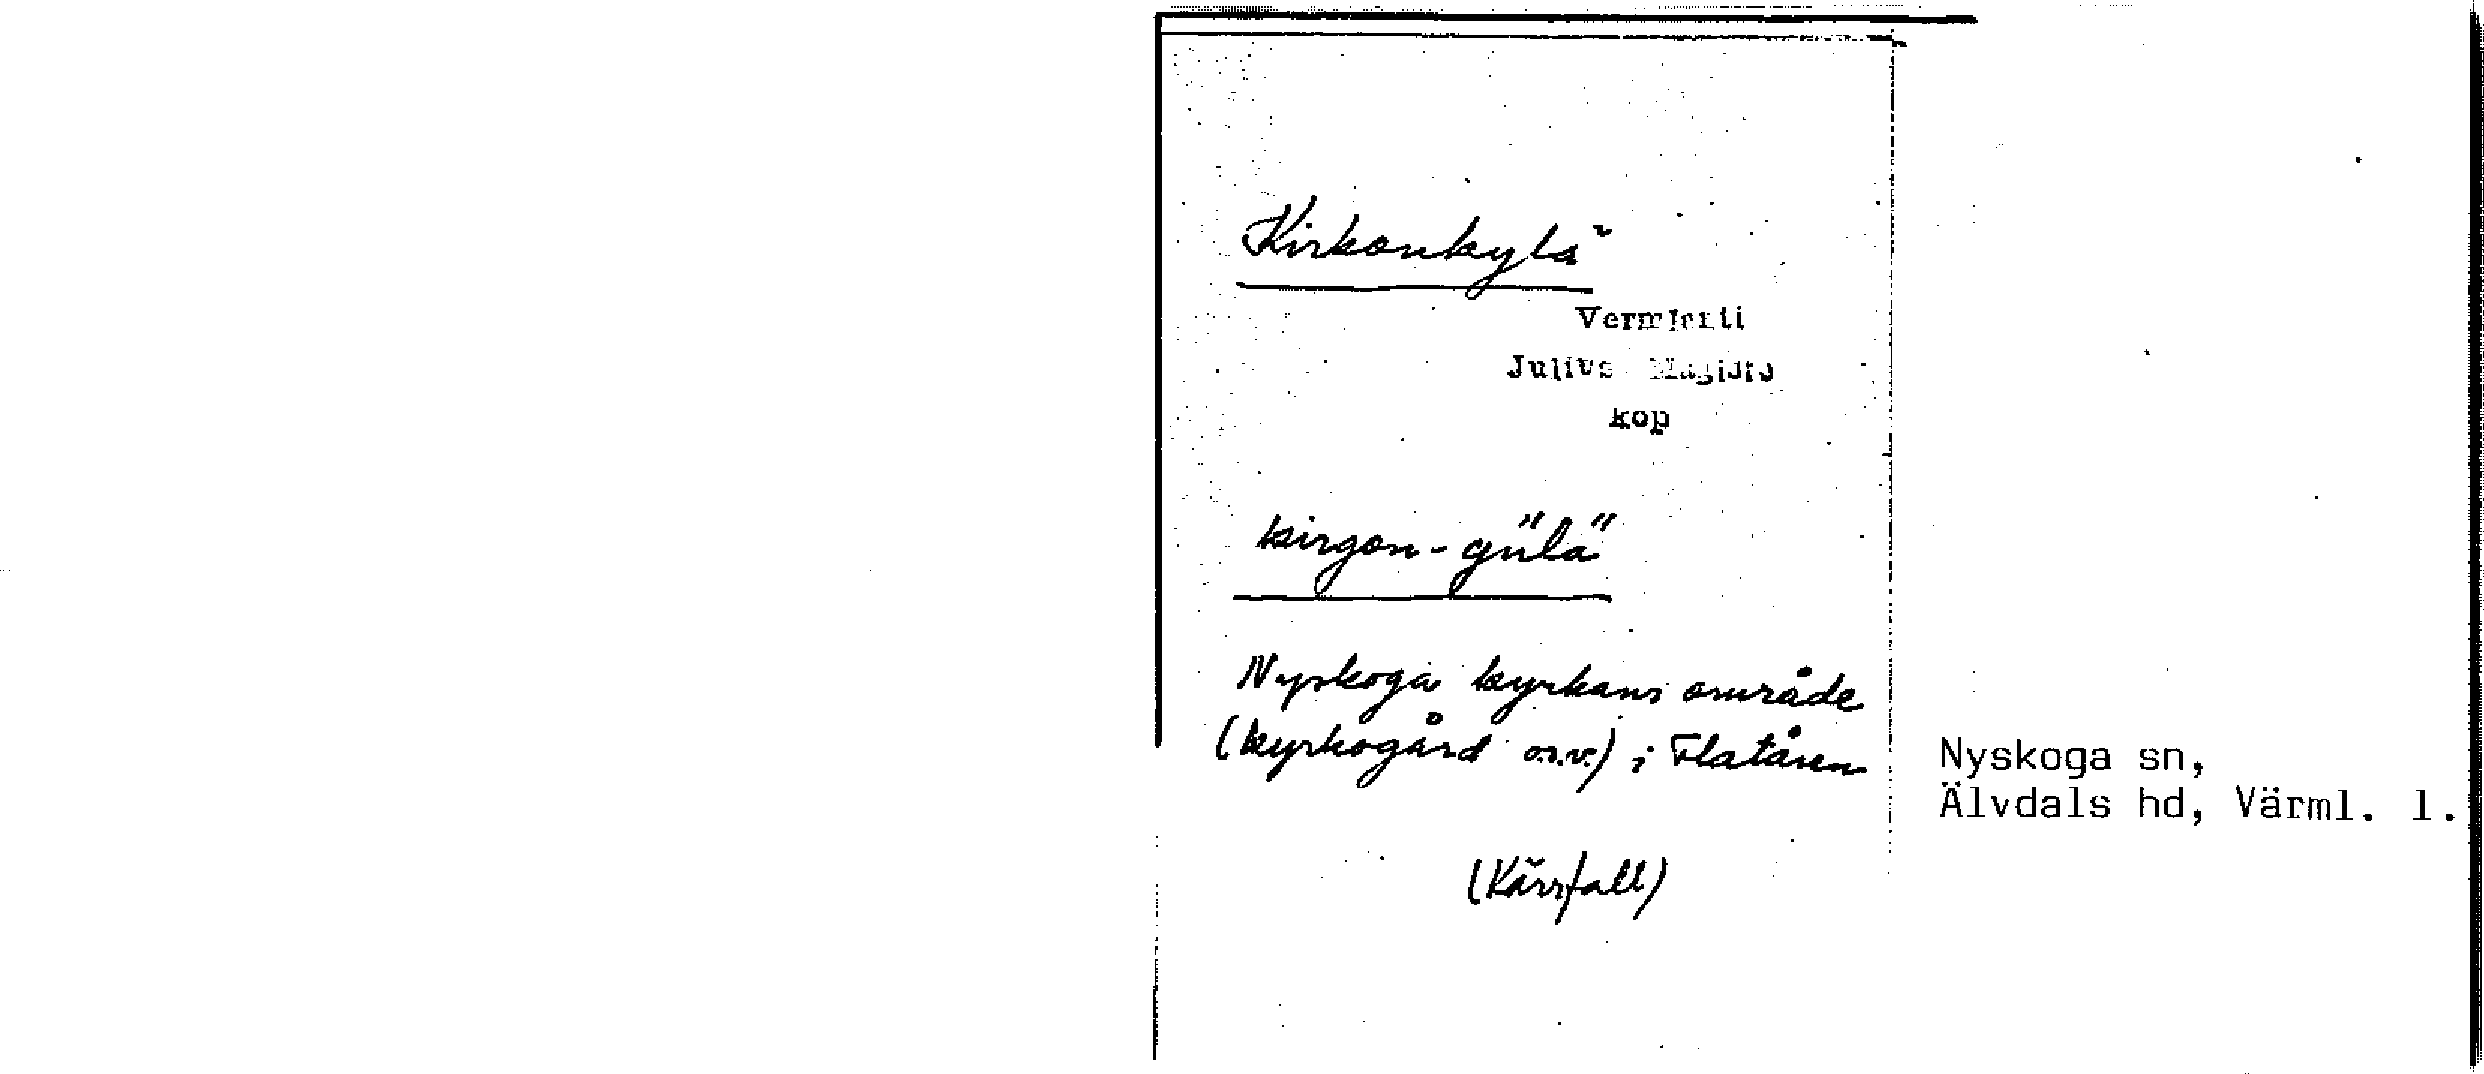 Kirkonkylä
Vermlanti
Julius Mägiste
kop
kirgon-gülä
Nyskoga kyrkans område
(kyrkogård o.s.v.) i Flatåsen
Nyskoga sn,
Älvdals hd, Värml. l.
(Kärrfall)